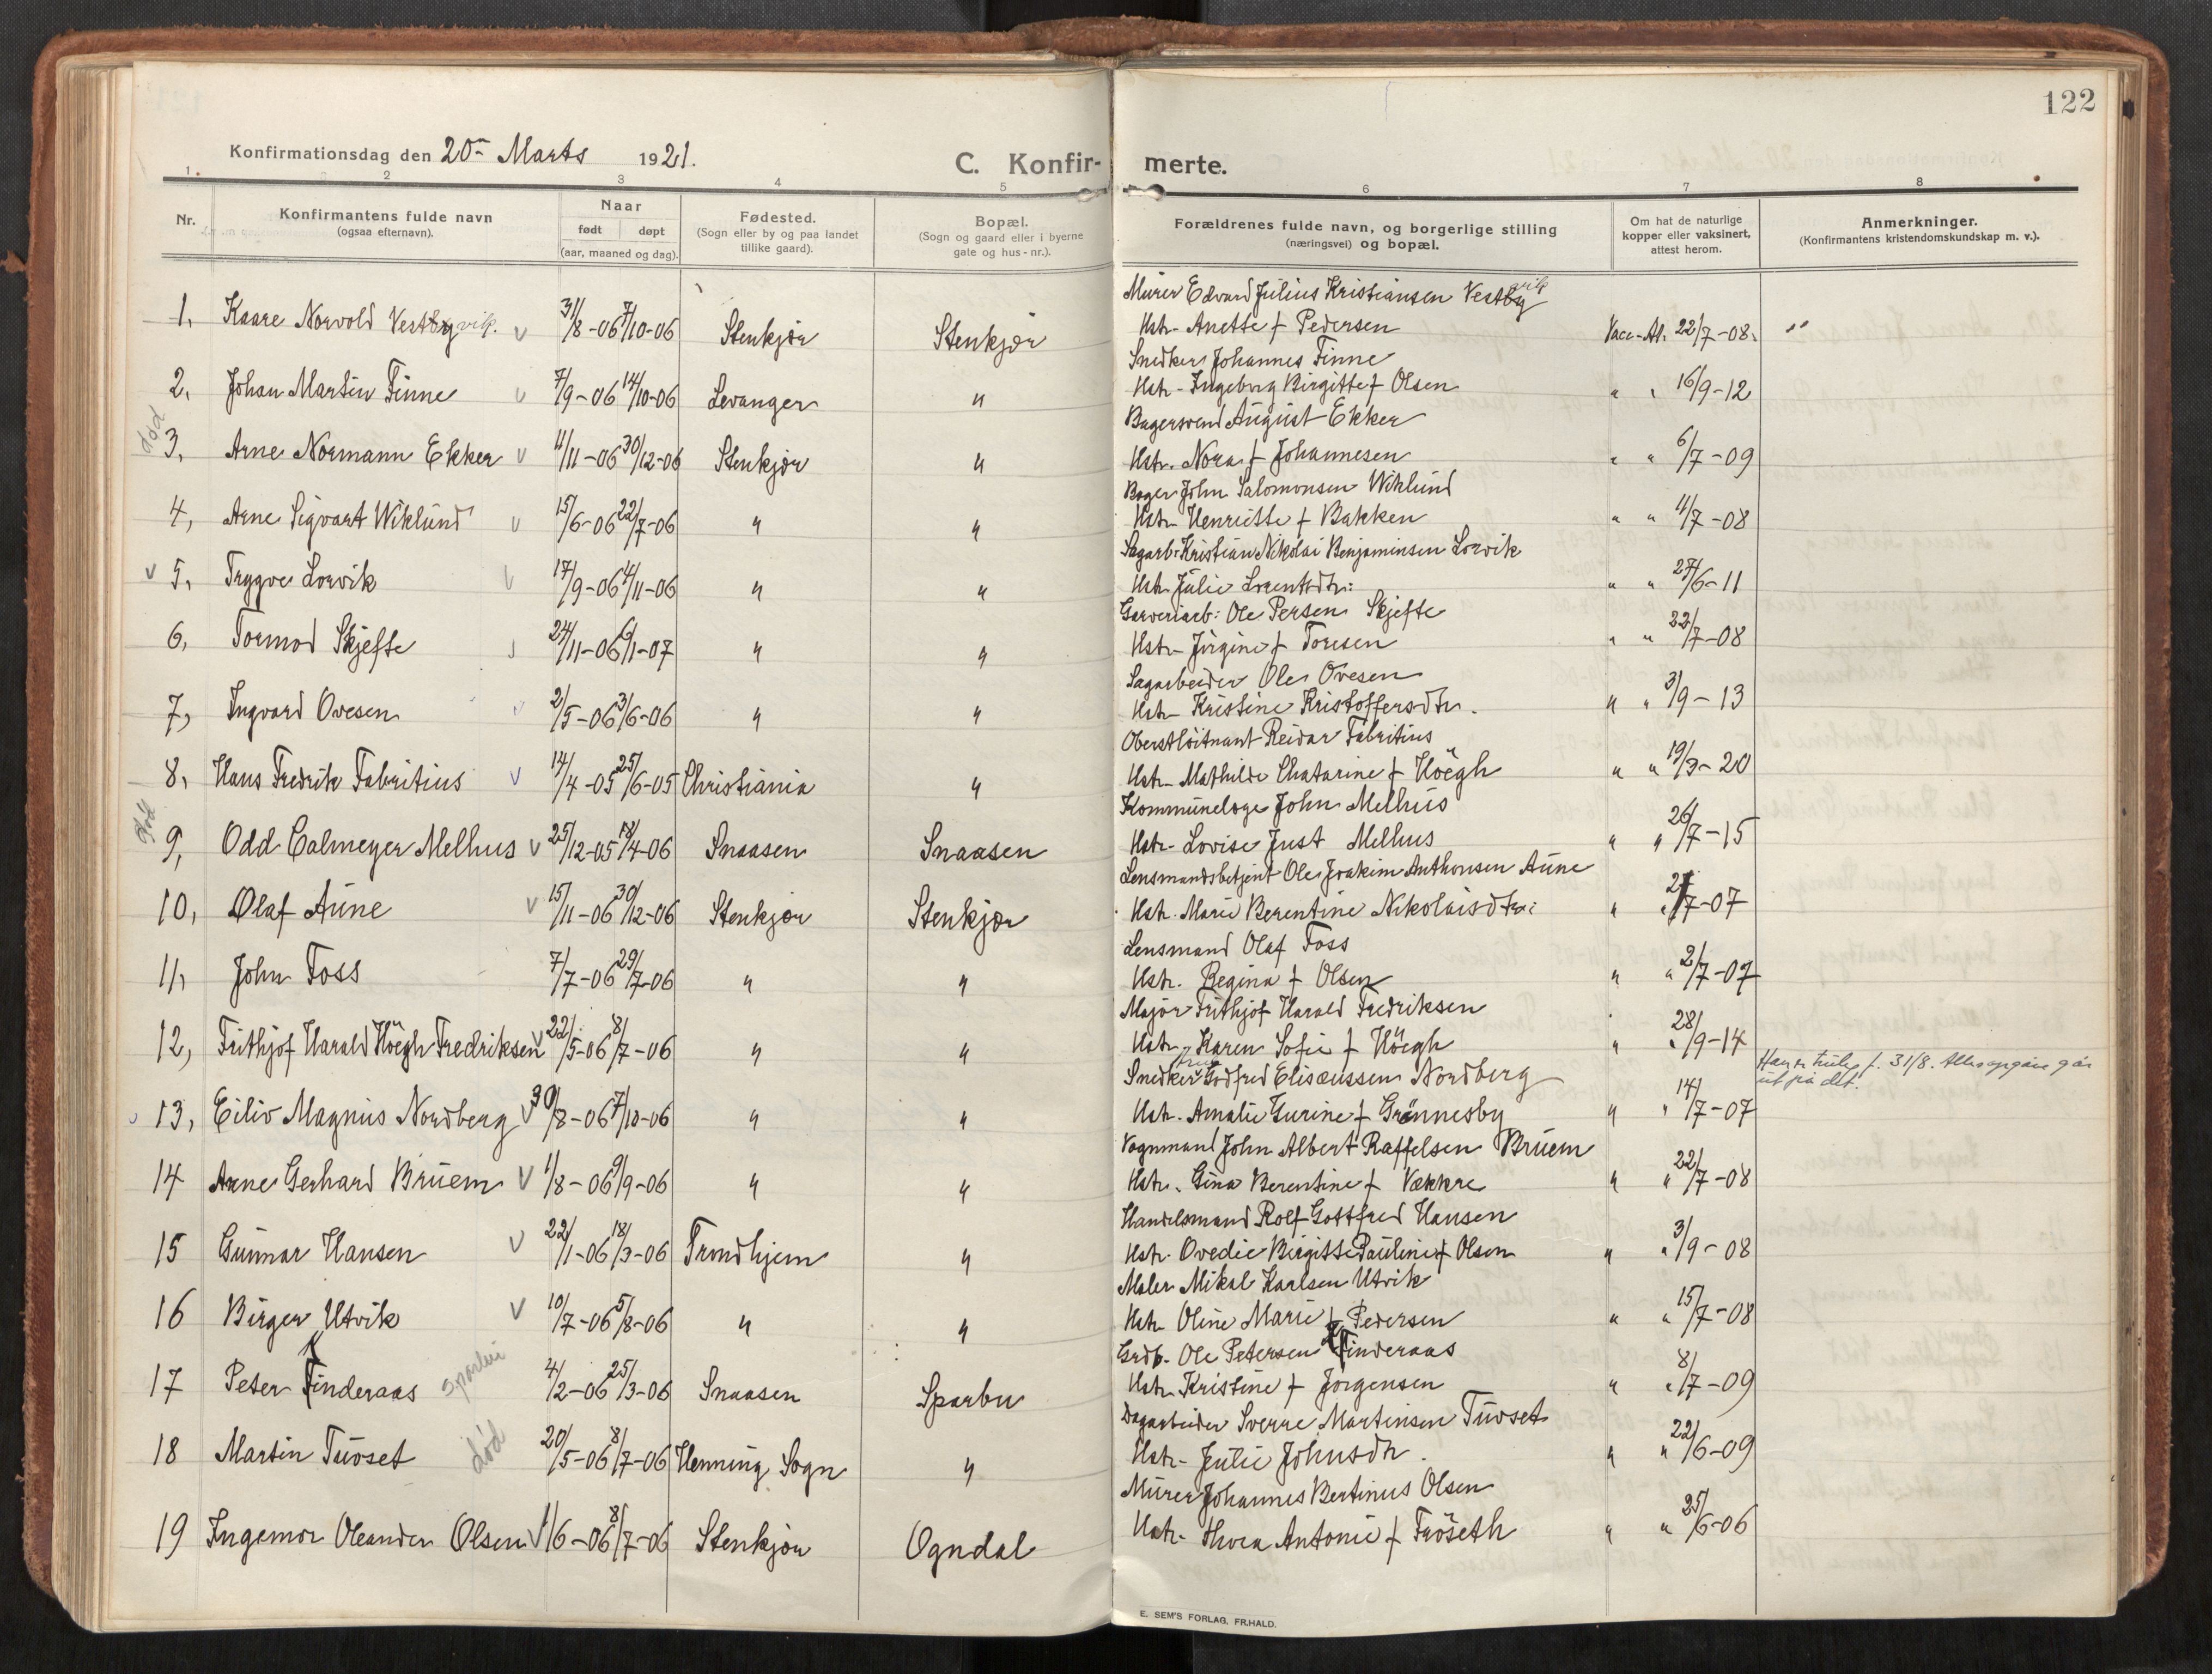 122
Konfirmationsdag den 20- Marts 1921. C. Konfir- merte.
1. 2 3 4 5 6 7 8
Nr. Konfirmantens fulde navn (ogsaa efternavn). Naar født døpt (aar, maaned og dag). Fødested. (Sogn eller by og paa landet tillike gaard). Bopæl. (Sogn og gaard eller i byerne gate og hus-nr.). Forældrenes fulde navn, og borgerlige stilling (næringsvei) og bopæl. Om hat de naturlige kopper eller vaksinert, attest herom. Anmerkninger. (Konfirmantens kristendomskundskap m. v.).
Murer Edvard Julius Kristiansen Vestby vik
1, Kaare Norvold Vestby vik. v 31/8-06 7/10-06 Stenkjør Stenkjør Hstr. Anette f Pedersen Vacc-At. 22/7-08. "
Snedker Johannes Finne
2, Johan Martin Finne v 7/9-06 14/10-06 Levanger " Hstr- Ingeborg Birgitte f Olsen " " 16/9-12
Bagersvend August Ekker
død 3, Arne Normann Ekker v 4/11-06 30/12-06 Stenkjør " Hstr. Nora f Johannesen " " 6/7-09
Bager John Salomonsen Wiklund
4, Arne Sigvart Wiklund v 15/6-06 22/7-06 " " Hstr- Henriette f Bakken " " 4/7-08
Sagarb: Kristian Nikolai Benjaminsen Lorvik
v 5, Trygve Lorvik v 17/9-06 4/11-06 " " Hstr. Julie Lorentsdtr: " " 27/6-11
Garveriarb: Ole Persen Skjefte
6, Tormod Skjefte v 24/11-06 6/1-07 " " Hstr- Jørgine f Toresen " " 22/7-08
Sagarbeider Ole Ovesen
7, Ingvard Ovesen v 2/5-06 3/6-06 " " Hstr- Kristine Kristoffersdtr. " " 3/9-13
Oberstløitnant Reidar Fabritius
8, Hans Fredrik Fabritius v 14/4-05 25/6-05 Christiania " Hstr- Mathilde Chatarine f Höegh " " 19/3-20
Kommunelæge John Melhus
død 9, Odd Calmeyer Melhus v 25/12-05 18/4-06 Snaasen Snaasen Hstr- Lovise Just Melhus " " 26/7-15
Lensmandsbetjent Ole Joakim Anthonsen Aune
10, Olaf Aune v 15/11-06 30/12-06 Stenkjør Stenkjør Hstr. Marie Berentine Nikolaisdtr: " " 2/7-07
Lensmand Olaf Foss
11, John Foss 7/7-06 29/7-06 " " Hstr. Regina f Olsen " " 2/7-07
Major Frithjof Harald Fredriksen
12, Frithjof Harald Höegh Fredriksen v 22/5-06 8/7-06 " " Hstr. Karen Sofie f Höegh " " 28/9-14
Snedker Godfred Elisæussen Nordberg
31/8.
ut på det.
13, Eiliv Magnus Nordberg v 30/8-06 7/10-06 " " Hstr. Amalie Gurine f Grønnesby " " 14/7-07
Vognmand John Albert Raffelsen Bruem
14 Arne Gerhard Bruem v 1/8-06 9/9-06 " " Hstr. Gina Berentine f Vækkre " " 22/7-08
Handelsmand Rolf Gottfred Hansen
15 Gunnar Hansen v 22/1-06 18/3-06 Trondhjem " Hstr. Ovedie Birgitte Pauline f Olsen " " 3/9-08
Maler Mikal Karlsen Utvik
16 Birger Utvik v 10/7-06 5/8-06 " " Hstr. Oline Marie f Pedersen " " 15/7-08
Grdb. Ole Petersen Finderaas
17 Peter Finderaas Sparbu 4/2-06 25/3-06 Snaasen Sparbu Hstr. Kristine f Jørgensen " " 8/7-09
Dagarbeider Sverre Martinsen Tuvset
18 Martin Tuvset død 20/5-06 8/7-06 Henning Sogn " Hstr- Julie Johnsdtr. " " 22/6-09
Murer Johannes Bertinus Olsen
19 Ingemor Oleander Olsen v 1/6-06 8/7-06 Stenkjør Ogndal Hstr- Thora Antonie f Frøseth " " 25/6-06
E. SEM'S FORLAG. FR.HALD.